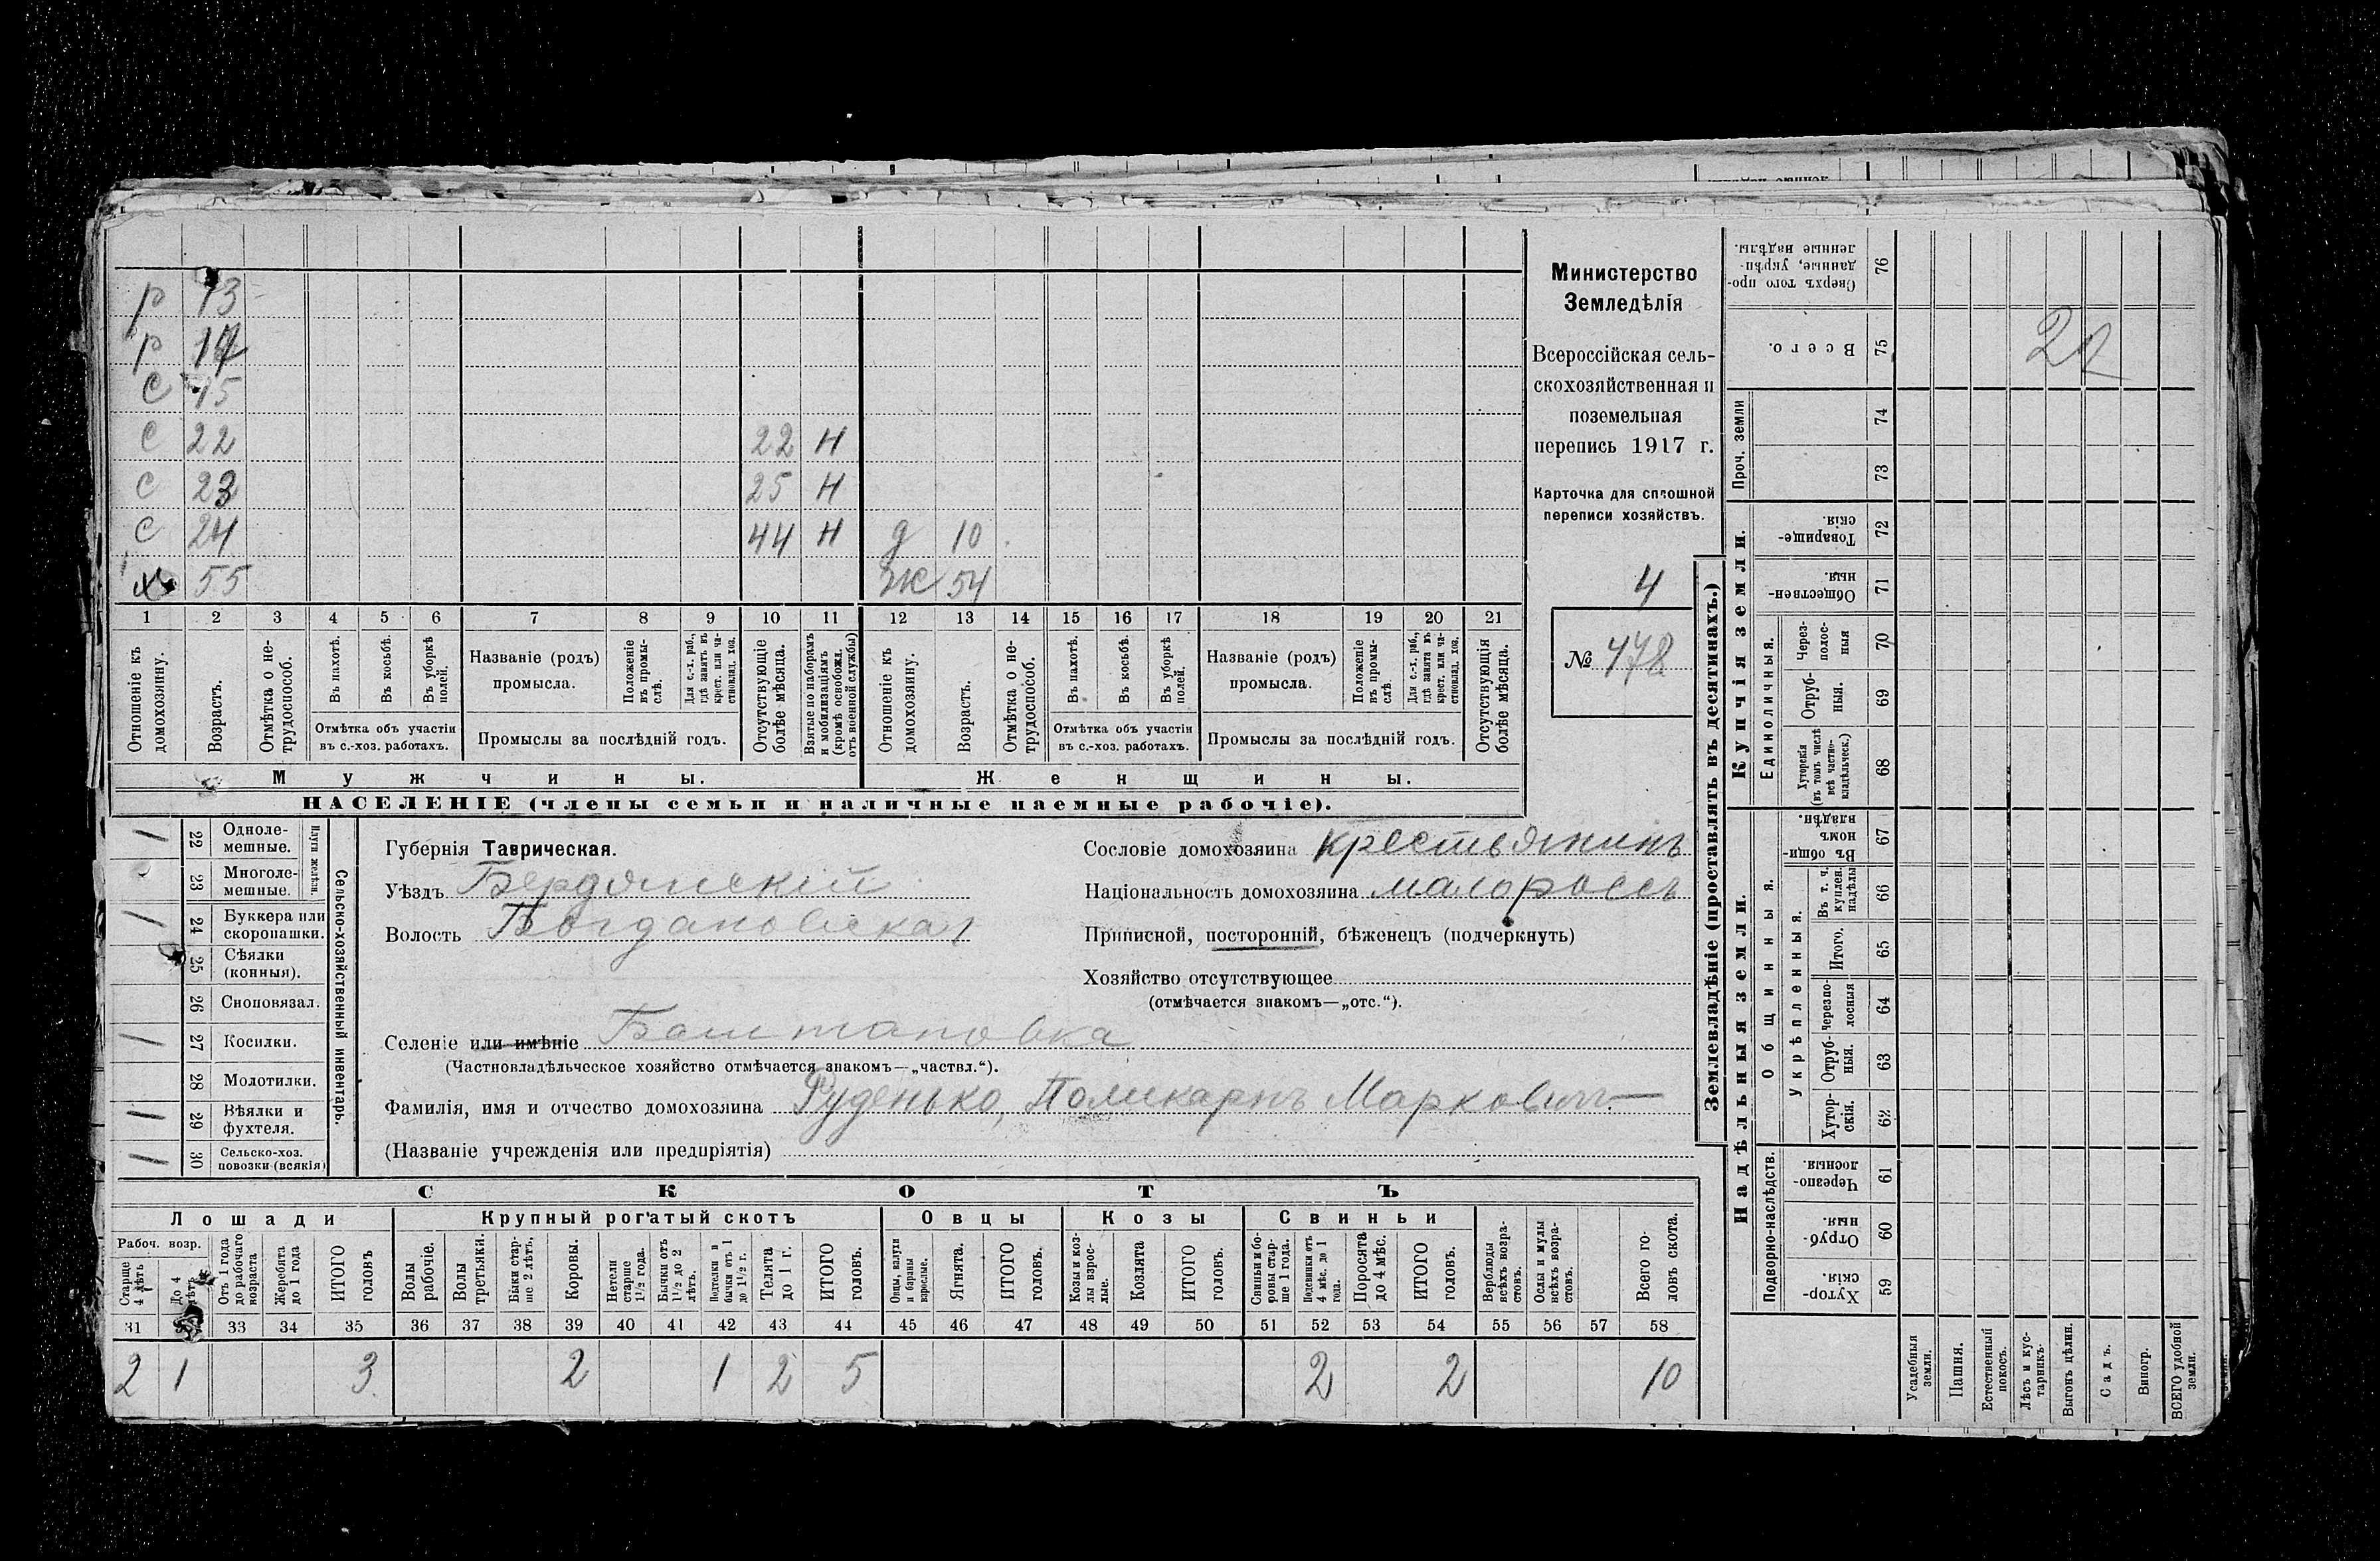 р 13
р 14
с 15
с 22 22 н
с 23 25 н
с 24 44 н д 10
х 55 ж 54
1 2 3 4 5 6 7 8 9 10 11 12 13 14 15 16 17 18 19 20 21
Отношеніе къ домохозяину.
Возрастъ.
Отмѣтка о не-трудоспособ.
Въ пахотѣ.
Въ косьбѣ.
Въ уборкѣ полей.
Отмѣтка объ участіи
въ с.-хоз. работахъ.
Названіе (родъ)
промысла.
Положеніе въ промы-слѣ.
Для с.-х. раб., гдѣ занятъ въ крест. или ча-стновлад. хоз.
Промыслы за послѣдній годъ.
Отсутствующіе болѣе мѣсяца.
Взятые по наборамъ и мобилизаціямъ (кромѣ освобожд. отъ военной службы)
Отношеніе къ домохозяину.
Возрастъ.
Отмѣтка о не-трудоспособ.
Въ пахотѣ.
Въ косьбѣ.
Въ уборкѣ полей.
Отмѣтка объ участіи
въ с.-хоз. работахъ.
Названіе (родъ)
промысла.
Положеніе въ промы-слѣ.
Для с.-х. раб., гдѣ занята въ крест. или ча-стновлад. хоз.
Промыслы за послѣдній годъ.
Отсутствующія болѣе мѣсяца.
Мужчины.
Женщины.
НАСЕЛЕНІЕ (члены семьи и наличные наемные рабочіе).
Министерство
Земледѣлія
Всероссійская сель-
скохозяйственная и
поземельная
перепись 1917 г.
Карточка для сплошной
переписи хозяйствъ.
4
№ 478
Сельско-хозяйственный инвентарь.
Плуги желѣзн.
1 22 Одноле-мешные.
23 Многоле-мешные.
1 24 Буккера или скоропашки.
25 Сѣялки (конныя).
26 Сноповязал.
1 27 Косилки.
28 Молотилки.
1 29 Вѣялки и фухтеля.
1 30 Сельско-хоз. повозки (всякія)
Губернія Таврическая.
Уѣздъ Бердянскій
Волость Богдановская
Селеніе или имѣніе Баштановка
(Частновладѣльческое хозяйство отмѣчается знакомъ—„частвл.“).
Фамилія, имя и отчество домохозяина Руденько, Поликарпъ Марковичъ
(Названіе учрежденія или предпріятія)
Сословіе домохозяина крестьянинъ
Національность домохозяина малороссъ
Приписной, посторонній, бѣженецъ (подчеркнуть)
Хозяйство отсутствующее
(отмѣчается знакомъ—„отс.“).
СКОТЪ
Лошади
Рабоч. возр.
Старше 4 лѣтъ
До 4 лѣтъ
Отъ 1 года до рабочаго возраста
Жеребята до 1 года
ИТОГО головъ
Крупный рогатый скотъ
Волы рабочіе.
Волы третьяки.
Быки стар-ше 2 лѣтъ.
Коровы.
Нетели старше 1½ года.
Бычки отъ 1½ до 2 лѣтъ.
Подтелки и бычки отъ 1 до 1½ г.
Телята до 1 г.
ИТОГО головъ.
Овцы
Овцы, валухи и бараны взрослые.
Ягнята.
ИТОГО головъ.
Козы
Козы и коз-лы взрос-лые.
Козлята
ИТОГО головъ.
Свиньи
Свиньи и бо-ровы стар-ше 1 года.
Подсвинки отъ 4 мѣс. до 1 года.
Поросята до 4 мѣс.
ИТОГО головъ.
Верблюды всѣхъ возра-стовъ.
Ослы и мулы всѣхъ возра-стовъ.
Всего го-ловъ скота.
31 33 34 35 36 37 38 39 40 41 42 43 44 45 46 47 48 49 50 51 52 53 54 55 56 57 58
2 1 3 2 1 2 5 2 2 10
Землевладѣніе (проставлять въ десятинахъ.)
Купчія земли.
Надѣльныя земли.
76 Сверхъ того про-данные, укрѣп-ленные надѣлы.
75 Всего.
Проч. земли
74
73
72 Товарище-скія.
71 Обществен-ныя.
Единоличныя.
70 Через-полос-ныя
69 Отруб-ныя.
68 Хуторскія (въ томъ числѣ всѣ частно-владѣльческ.)
Общинныя.
67 Въ общин-номъ владѣн.
Укрѣпленныя.
66 Въ т. ч. куплен. надѣлы
65 Итого.
64 Черезпо-лосныя
63 Отруб-ныя.
62 Хутор-скія.
Подворно-наслѣдств.
61 Черезпо-лосныя
60 Отруб-ныя.
59 Хутор-скія.
Усадебныя земли.
Пашня.
Естественный покосъ.
Лѣсъ и кус-тарникъ.
Выгонъ цѣлин.
Садъ.
Виногр.
ВСЕГО удобной земли.